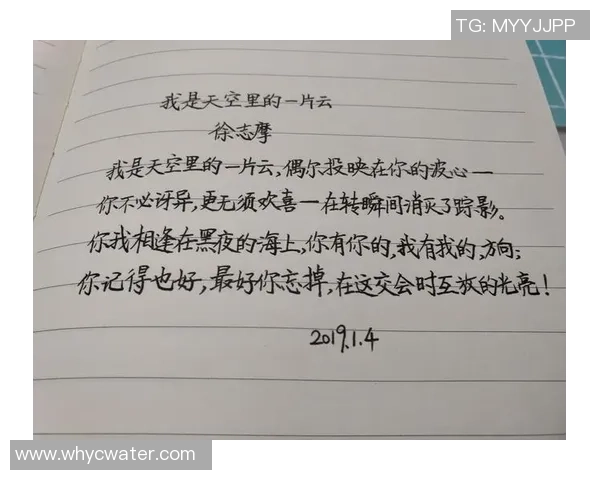 TG: MYYJJPP
我是天空里的一片云
徐志摩
我是天空里的一片云,偶尔投映在你的波心一
你不必讶异,更无须欢喜一在转瞬间消灭了踪影。
你我相逢在黑夜的海上,你有你的,我有我的,方向;
你记得也好,最好你忘掉,在这交会时互放的光亮!
2019.1.4
www.whycwater.com